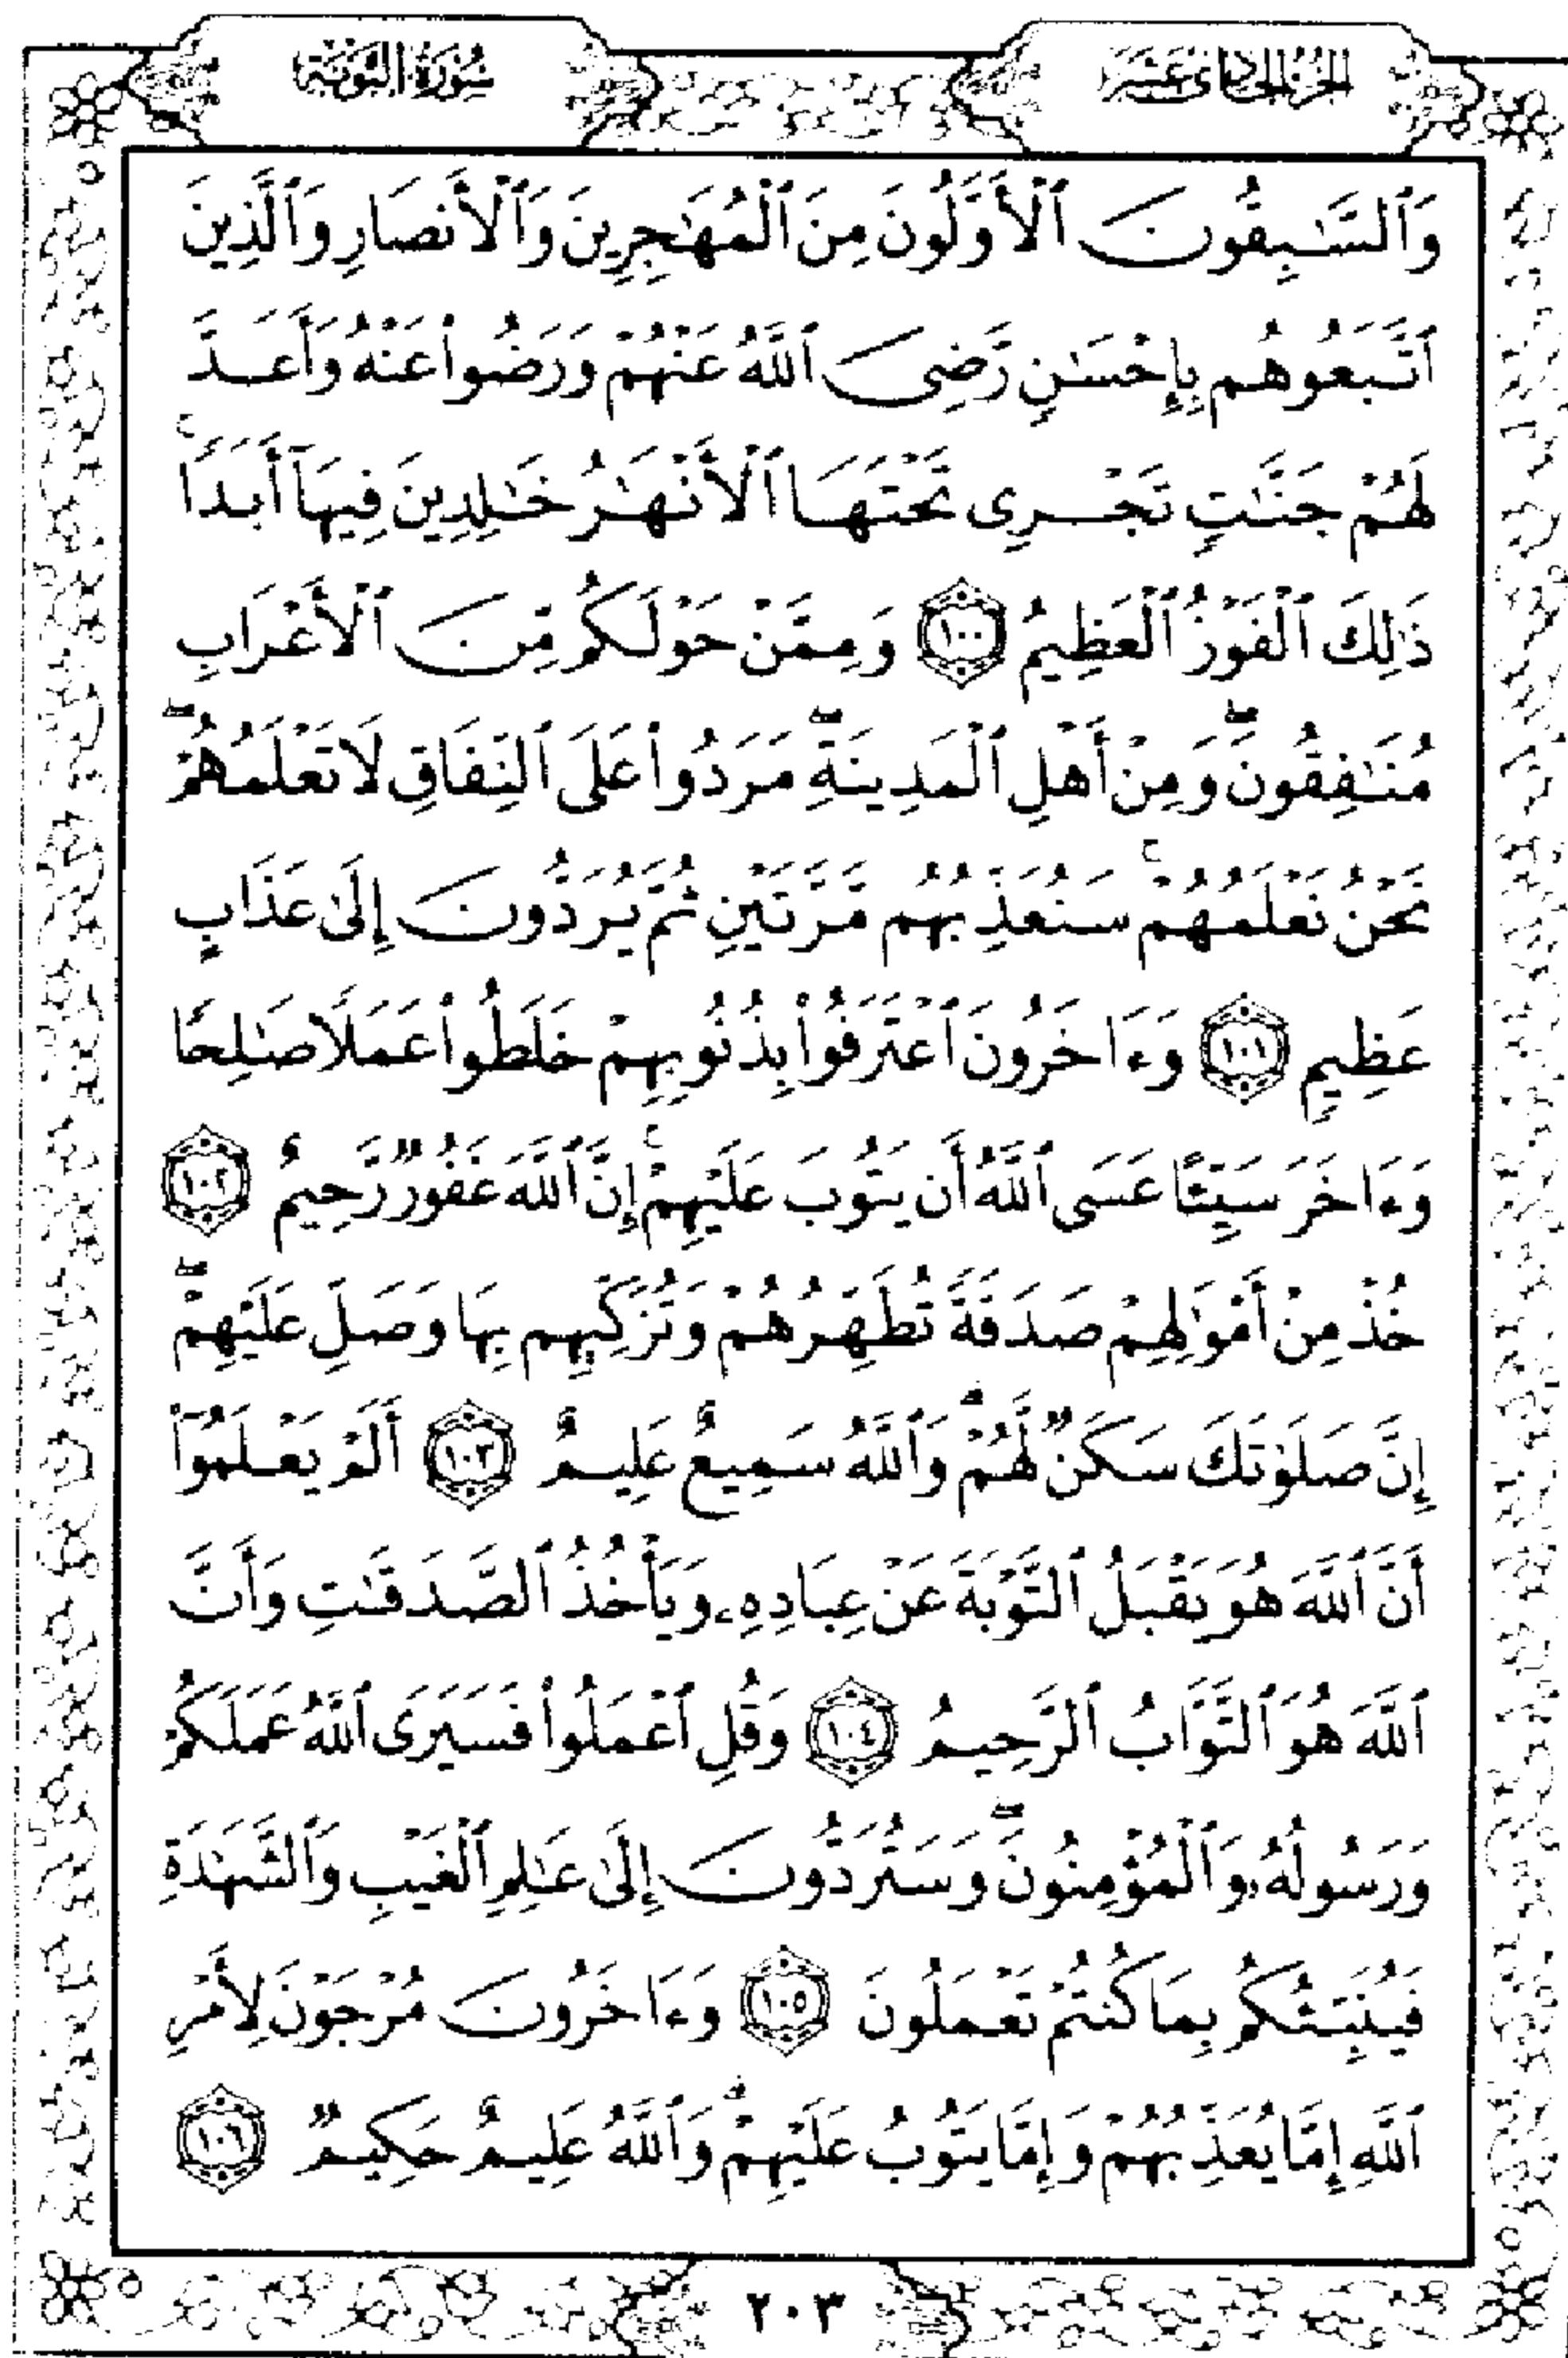 الجزء الحادي عشر
سورة التوبة
وَٱلسَّـٰبِقُونَ ٱلْأَوَّلُونَ مِنَ ٱلْمُهَـٰجِرِينَ وَٱلْأَنصَارِ وَٱلَّذِينَ
ٱتَّبَعُوهُم بِإِحْسَـٰنٍ رَّضِىَ ٱللَّهُ عَنْهُمْ وَرَضُوا۟ عَنْهُ وَأَعَدَّ
لَهُمْ جَنَّـٰتٍ تَجْرِى تَحْتَهَا ٱلْأَنْهَـٰرُ خَـٰلِدِينَ فِيهَآ أَبَدًا ۚ
ذَٰلِكَ ٱلْفَوْزُ ٱلْعَظِيمُ ١٠٠ وَمِمَّنْ حَوْلَكُم مِّنَ ٱلْأَعْرَابِ
مُنَـٰفِقُونَ ۖ وَمِنْ أَهْلِ ٱلْمَدِينَةِ ۖ مَرَدُوا۟ عَلَى ٱلنِّفَاقِ لَا تَعْلَمُهُمْ ۖ
نَحْنُ نَعْلَمُهُمْ ۚ سَنُعَذِّبُهُم مَّرَّتَيْنِ ثُمَّ يُرَدُّونَ إِلَىٰ عَذَابٍ
عَظِيمٍ ١٠١ وَءَاخَرُونَ ٱعْتَرَفُوا۟ بِذُنُوبِهِمْ خَلَطُوا۟ عَمَلًا صَـٰلِحًا
وَءَاخَرَ سَيِّئًا عَسَى ٱللَّهُ أَن يَتُوبَ عَلَيْهِمْ ۚ إِنَّ ٱللَّهَ غَفُورٌ رَّحِيمٌ ١٠٢
خُذْ مِنْ أَمْوَٰلِهِمْ صَدَقَةً تُطَهِّرُهُمْ وَتُزَكِّيهِم بِهَا وَصَلِّ عَلَيْهِمْ ۖ
إِنَّ صَلَوٰتَكَ سَكَنٌ لَّهُمْ ۗ وَٱللَّهُ سَمِيعٌ عَلِيمٌ ١٠٣ أَلَمْ يَعْلَمُوٓا۟
أَنَّ ٱللَّهَ هُوَ يَقْبَلُ ٱلتَّوْبَةَ عَنْ عِبَادِهِۦ وَيَأْخُذُ ٱلصَّدَقَـٰتِ وَأَنَّ
ٱللَّهَ هُوَ ٱلتَّوَّابُ ٱلرَّحِيمُ ١٠٤ وَقُلِ ٱعْمَلُوا۟ فَسَيَرَى ٱللَّهُ عَمَلَكُمْ
وَرَسُولُهُۥ وَٱلْمُؤْمِنُونَ ۖ وَسَتُرَدُّونَ إِلَىٰ عَـٰلِمِ ٱلْغَيْبِ وَٱلشَّهَـٰدَةِ
فَيُنَبِّئُكُم بِمَا كُنتُمْ تَعْمَلُونَ ١٠٥ وَءَاخَرُونَ مُرْجَوْنَ لِأَمْرِ
ٱللَّهِ إِمَّا يُعَذِّبُهُمْ وَإِمَّا يَتُوبُ عَلَيْهِمْ ۗ وَٱللَّهُ عَلِيمٌ حَكِيمٌ ١٠٦
٢٠٣